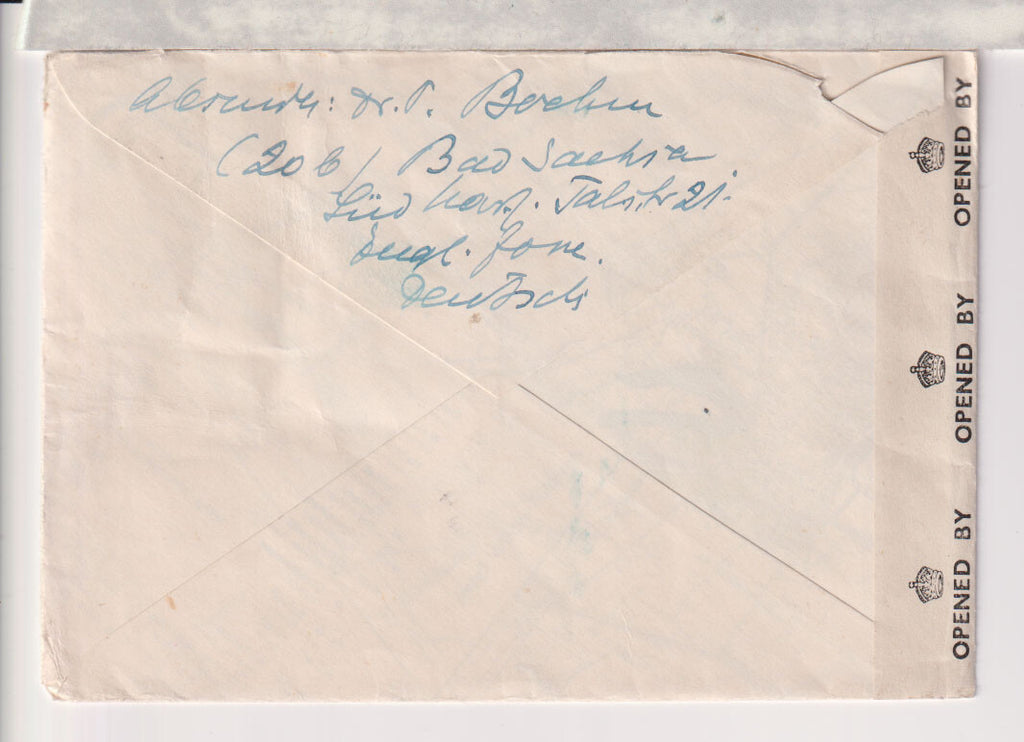 Absender: Dr. P. Boehm
(20b) Bad Sachsa
Südharz. Talstr 21.
Engl. Zone.
Deutschl
OPENED BY
OPENED BY
OPENED BY